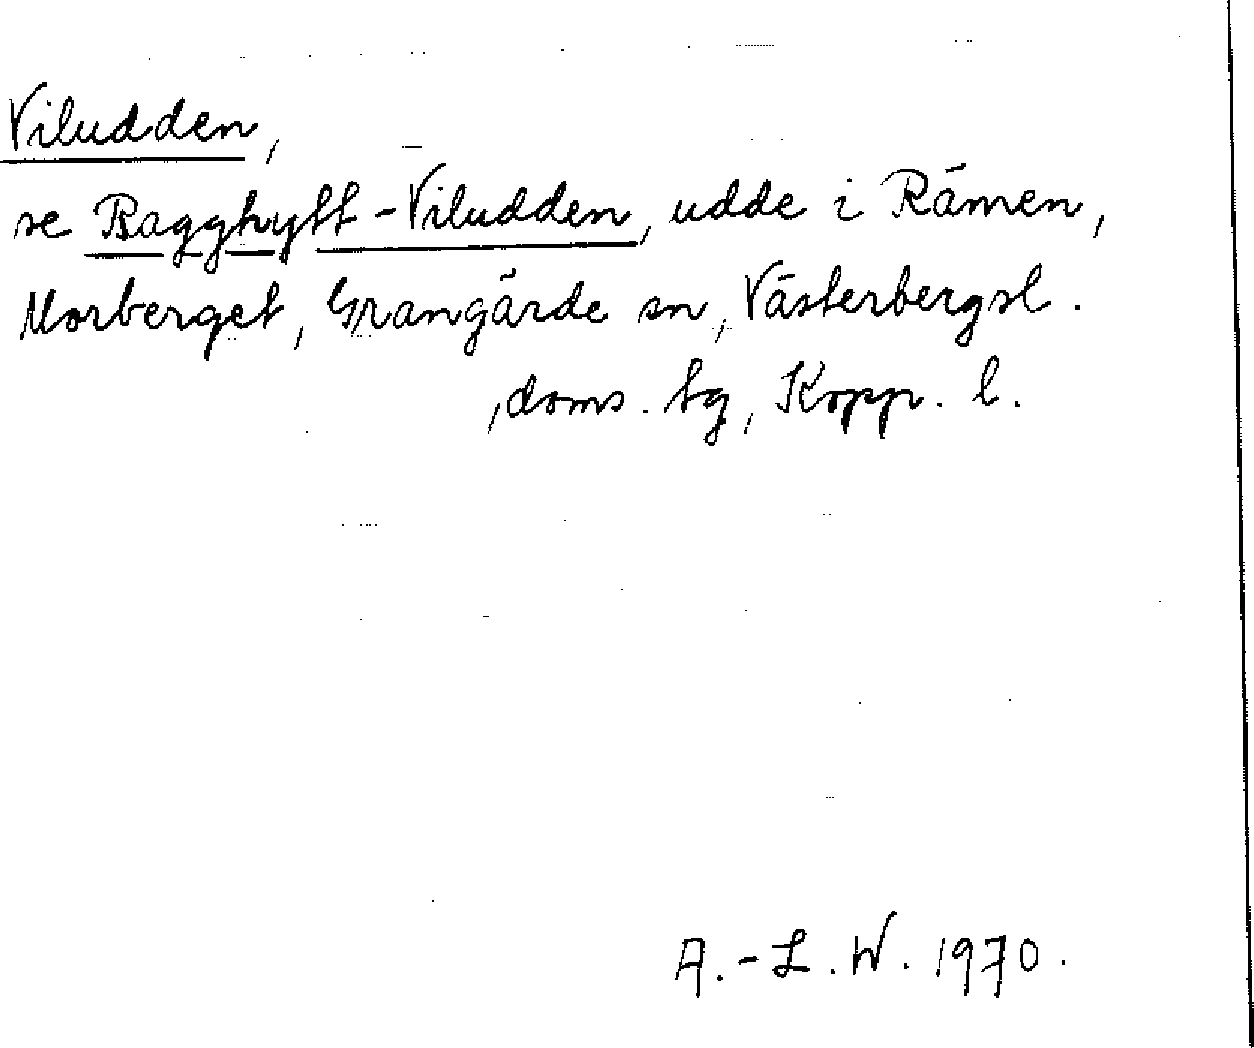 Viludden,
se Bagghytt-Viludden, udde i Rämen,
Norberget, Grangärde sn, Västerbergsl.
, doms. tg, Kopp. l.
A.-L.W. 1970.